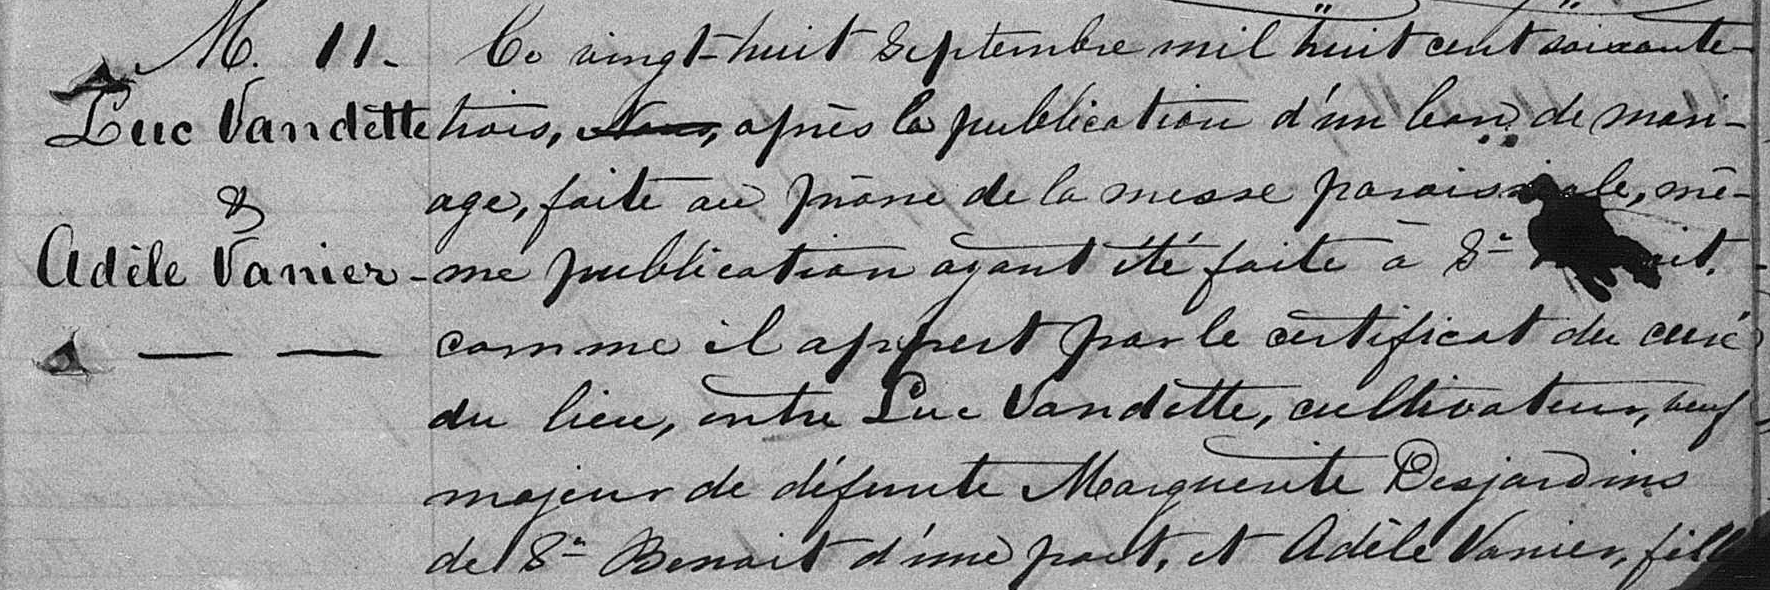 M. 11.
Luc Vandette
&
Adèle Vanier
Ce vingt-huit Septembre mil huit cent soixante-
trois, après la publication d'un ban de mari-
age, faite au prône de la messe paroissiale, mê-
me publication ayant été faite à St
comme il appert par le certificat du curé
du lieu, entre Luc Vandette, cultivateur, veuf
majeur de défunte Marguerite Desjardins
de St Benoit d'une part, et Adèle Vanier, fille